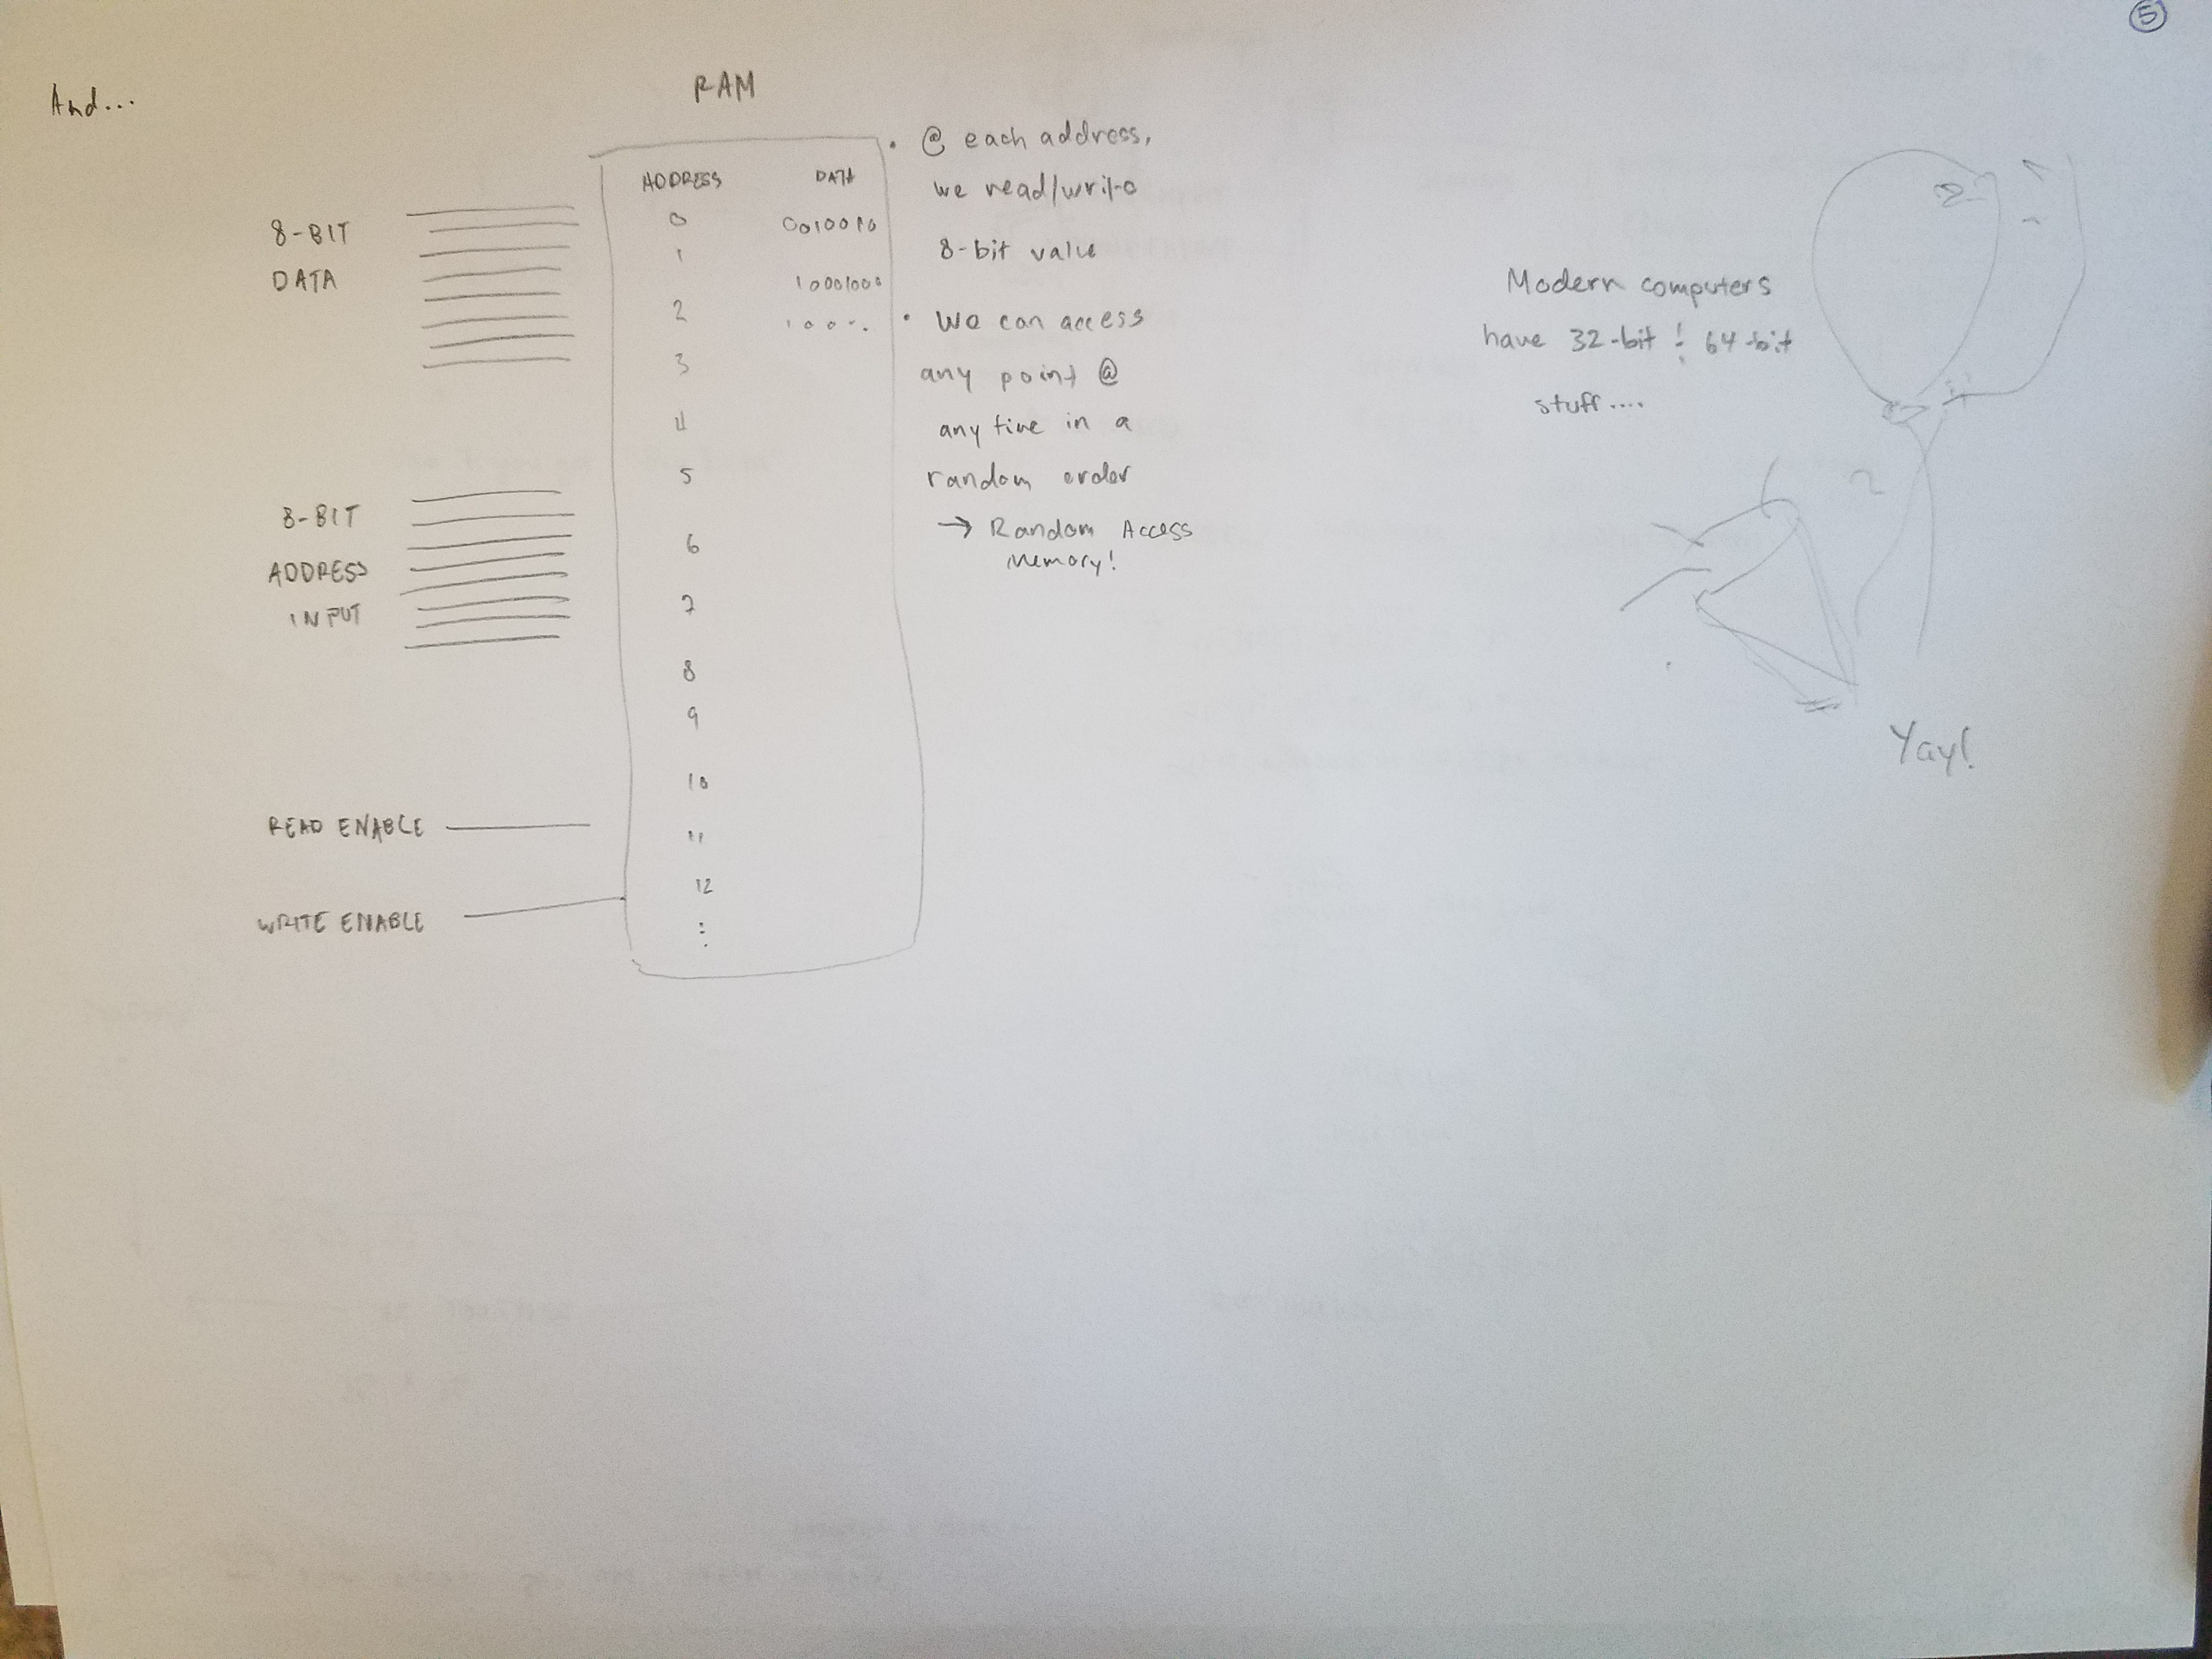 And...
RAM
8-BIT
DATA
8-BIT
ADDRESS
INPUT
READ ENABLE
WRITE ENABLE
ADDRESS DATA
0 00100010
1 10001000
2 100
3
4
5
6
7
8
9
10
11
12
⋮
• @ each address,
we read/write
8-bit value
• We can access
any point @
any time in a
random order
→ Random Access
Memory!
Modern computers
have 32-bit & 64-bit
stuff....
Yay!
5